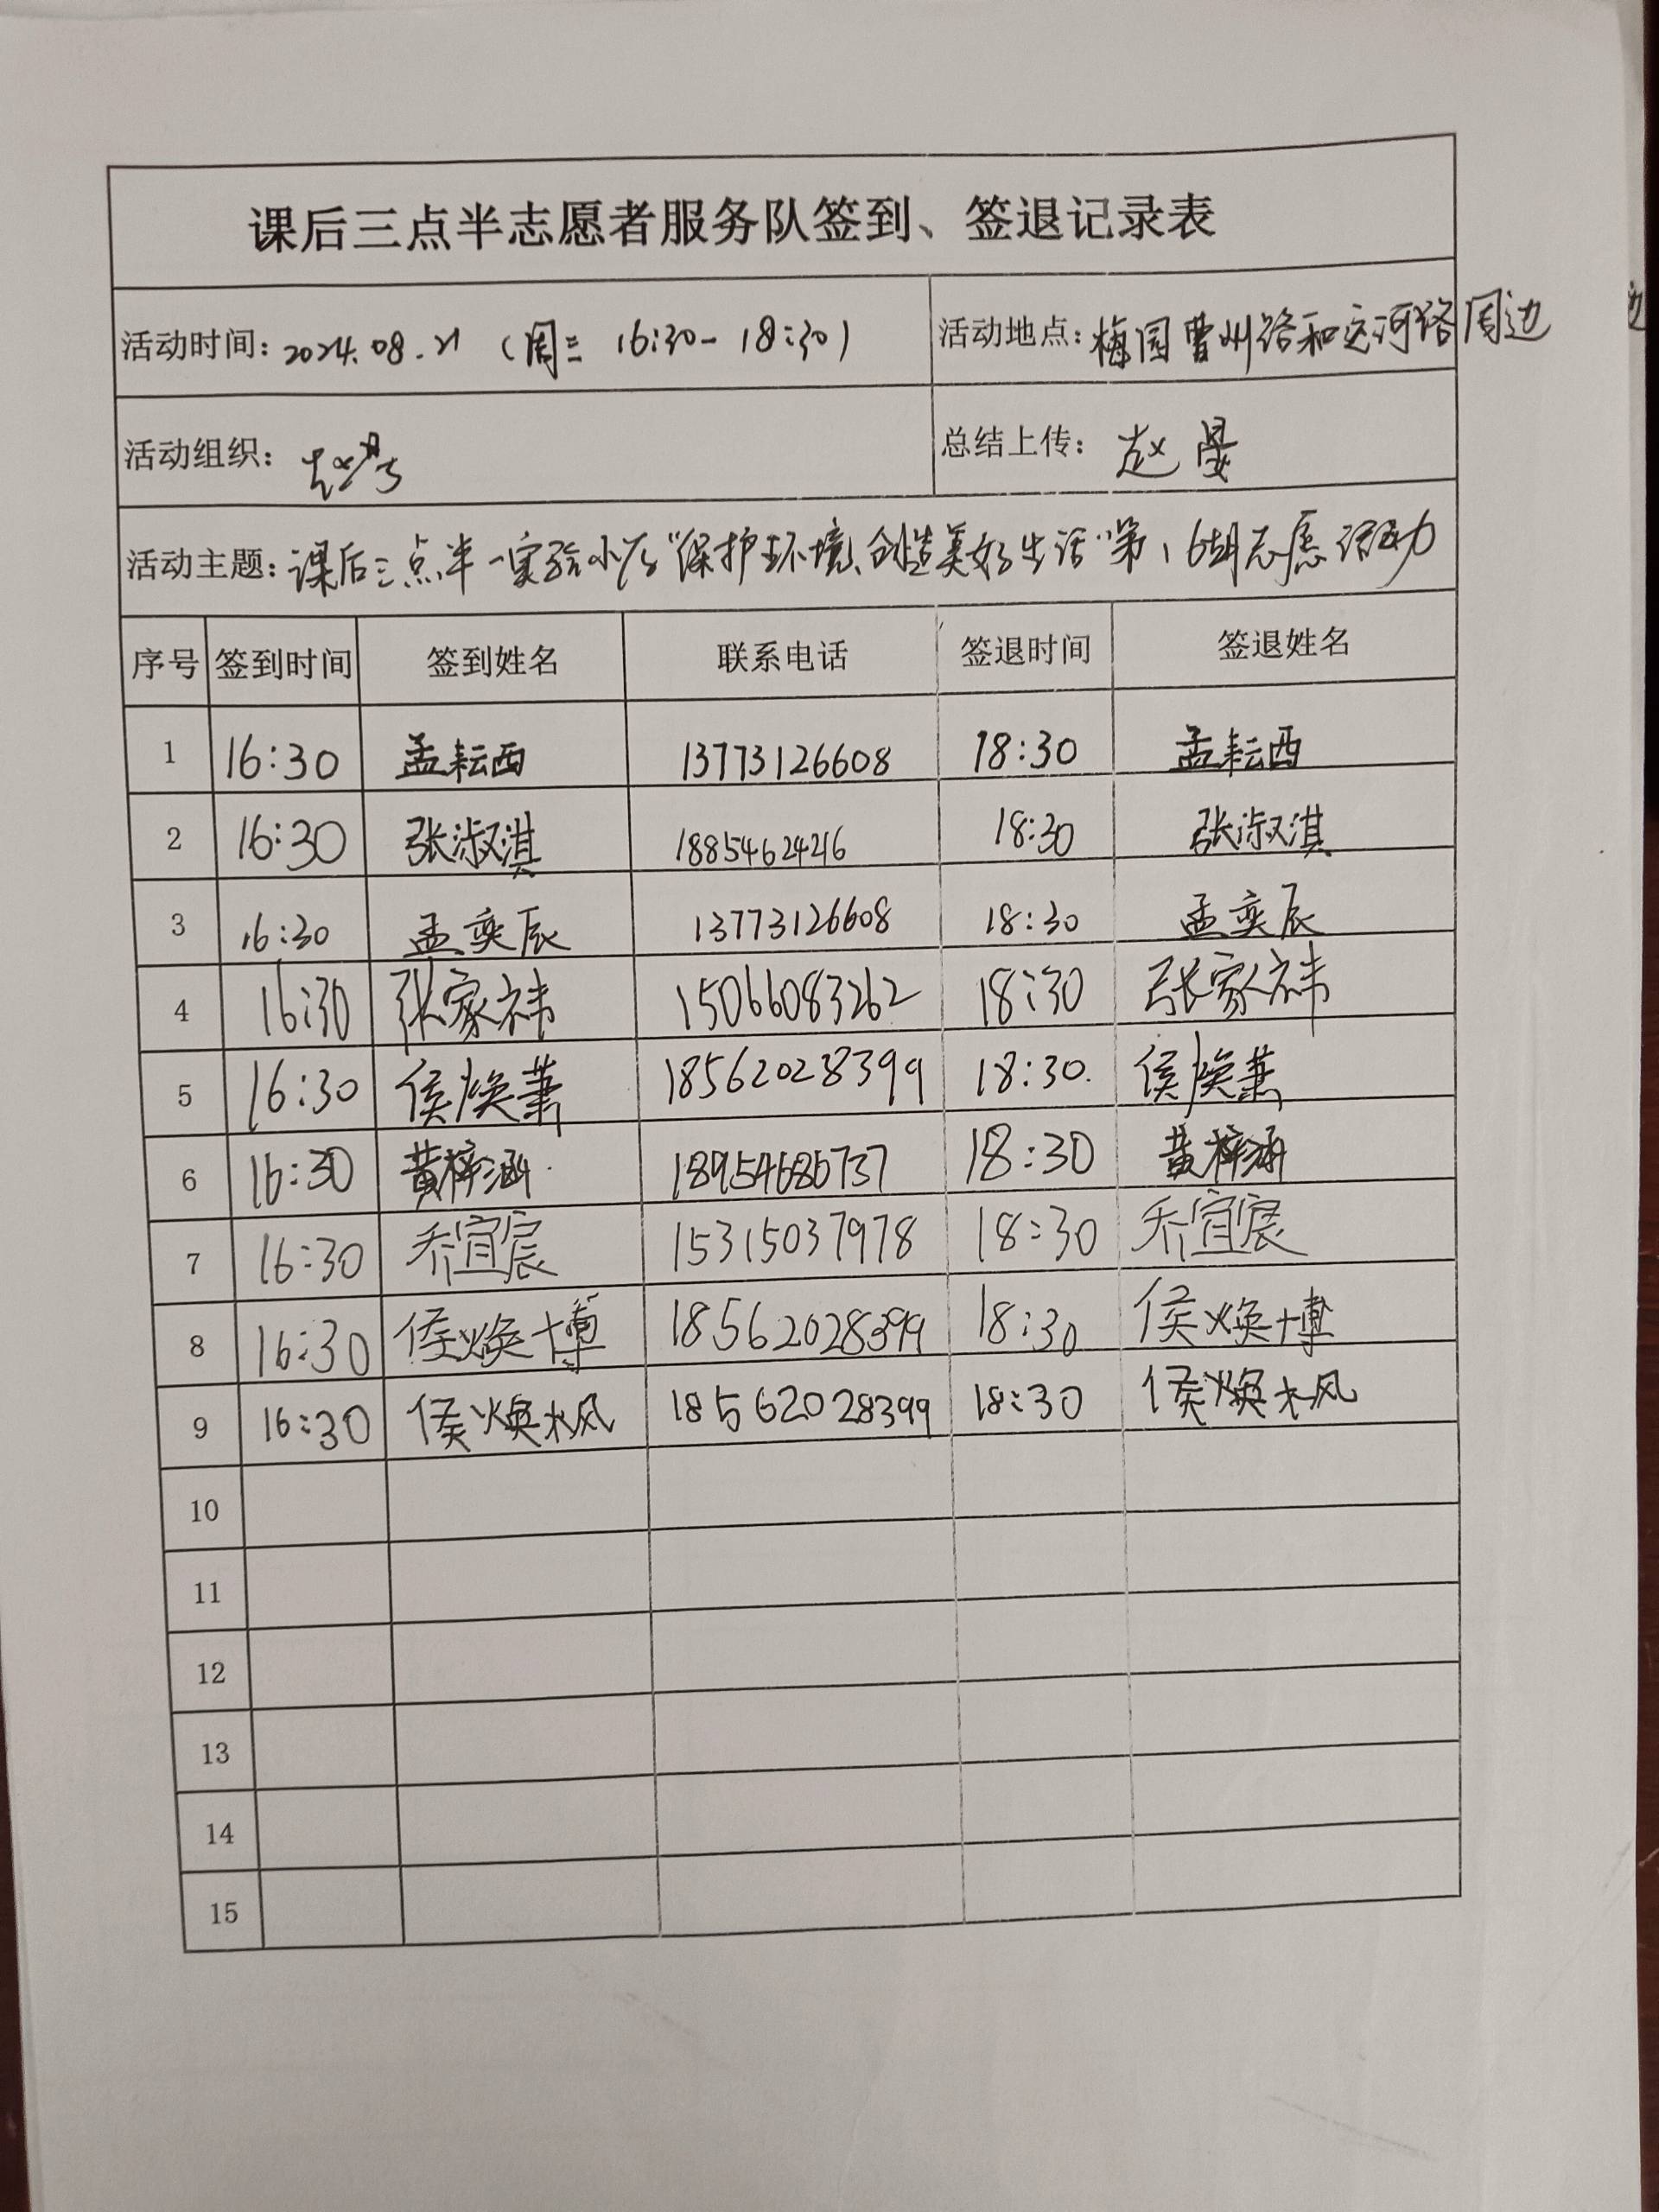 课后三点半志愿者服务队签到、签退记录表
活动时间：2024.08.21（周三 16:30-18:30） 活动地点：梅园曹州路和运河路周边
活动组织：赵晏 总结上传：赵晏
活动主题：课后三点半-实验小学“保护环境、创造美好生活”第16期志愿活动
序号 签到时间 签到姓名 联系电话 签退时间 签退姓名
1 16:30 孟耘西 13773126608 18:30 孟耘西
2 16:30 张淑淇 18854624216 18:30 张淑淇
3 16:30 孟奕辰 13773126608 18:30 孟奕辰
4 16:30 张家祎 15066083262 18:30 张家祎
5 16:30 侯焕萧 18562028399 18:30. 侯焕萧
6 16:30 黄梓涵 18954686737 18:30 黄梓涵
7 16:30 乔宜宸 15315037978 18:30 乔宜宸
8 16:30 侯焕博 18562028399 18:30 侯焕博
9 16:30 侯焕枫 18562028399 18:30 侯焕枫
10
11
12
13
14
15